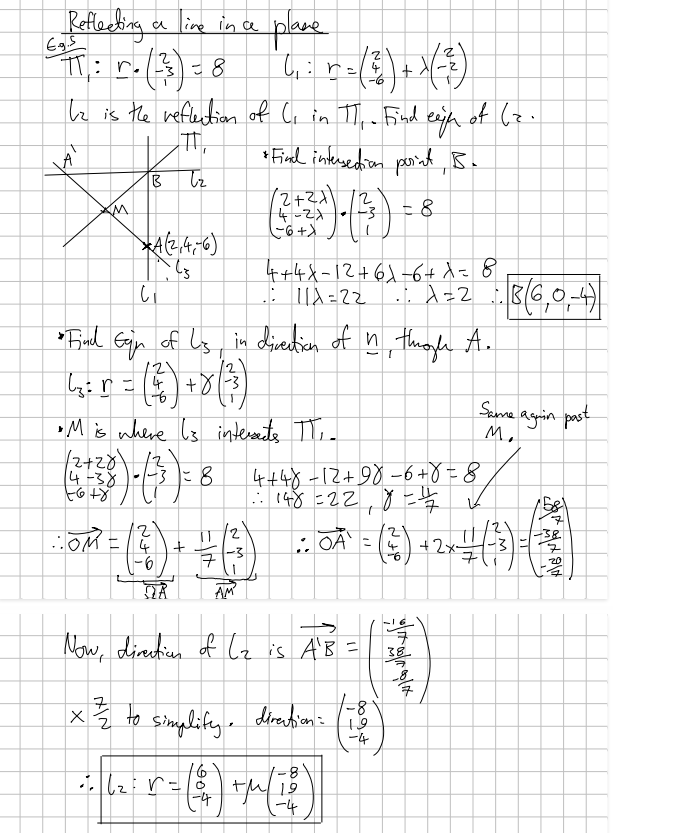 Reflecting a line in a plane
Eg.5
Π₁: r · (2, -3, 1) = 8    l₁: r = (2, 4, -6) + λ(2, -2, 1)
l₂ is the reflection of l₁ in Π₁. Find eqn of l₂.
Π₁
A'
B
l₂
M
A(2,4,-6)
l₃
l₁
• Find intersection point, B.
(2+2λ, 4-2λ, -6+λ) · (2, -3, 1) = 8
4+4λ-12+6λ-6+λ = 8
∴ 11λ=22 ∴ λ=2 ∴ B(6,0,-4)
• Find Eqn of l₃, in direction of n, through A.
l₃: r = (2, 4, -6) + γ(2, -3, 1)
• M is where l₃ intersects Π₁.
Same again past
M.
(2+2γ, 4-3γ, -6+γ) · (2, -3, 1) = 8    4+4γ-12+9γ-6+γ = 8
∴ 14γ=22, γ=11/7
∴ OM = (2, 4, -6) + 11/7 (2, -3, 1)    ∴ OA' = (2, 4, -6) + 2×11/7 (2, -3, 1) = (58/7, -38/7, -20/7)
OA    AM
Now, direction of l₂ is A'B = (-16/7, 38/7, -8/7)
× 7/2 to simplify. direction: (-8, 19, -4)
∴ l₂: r = (6, 0, -4) + μ(-8, 19, -4)